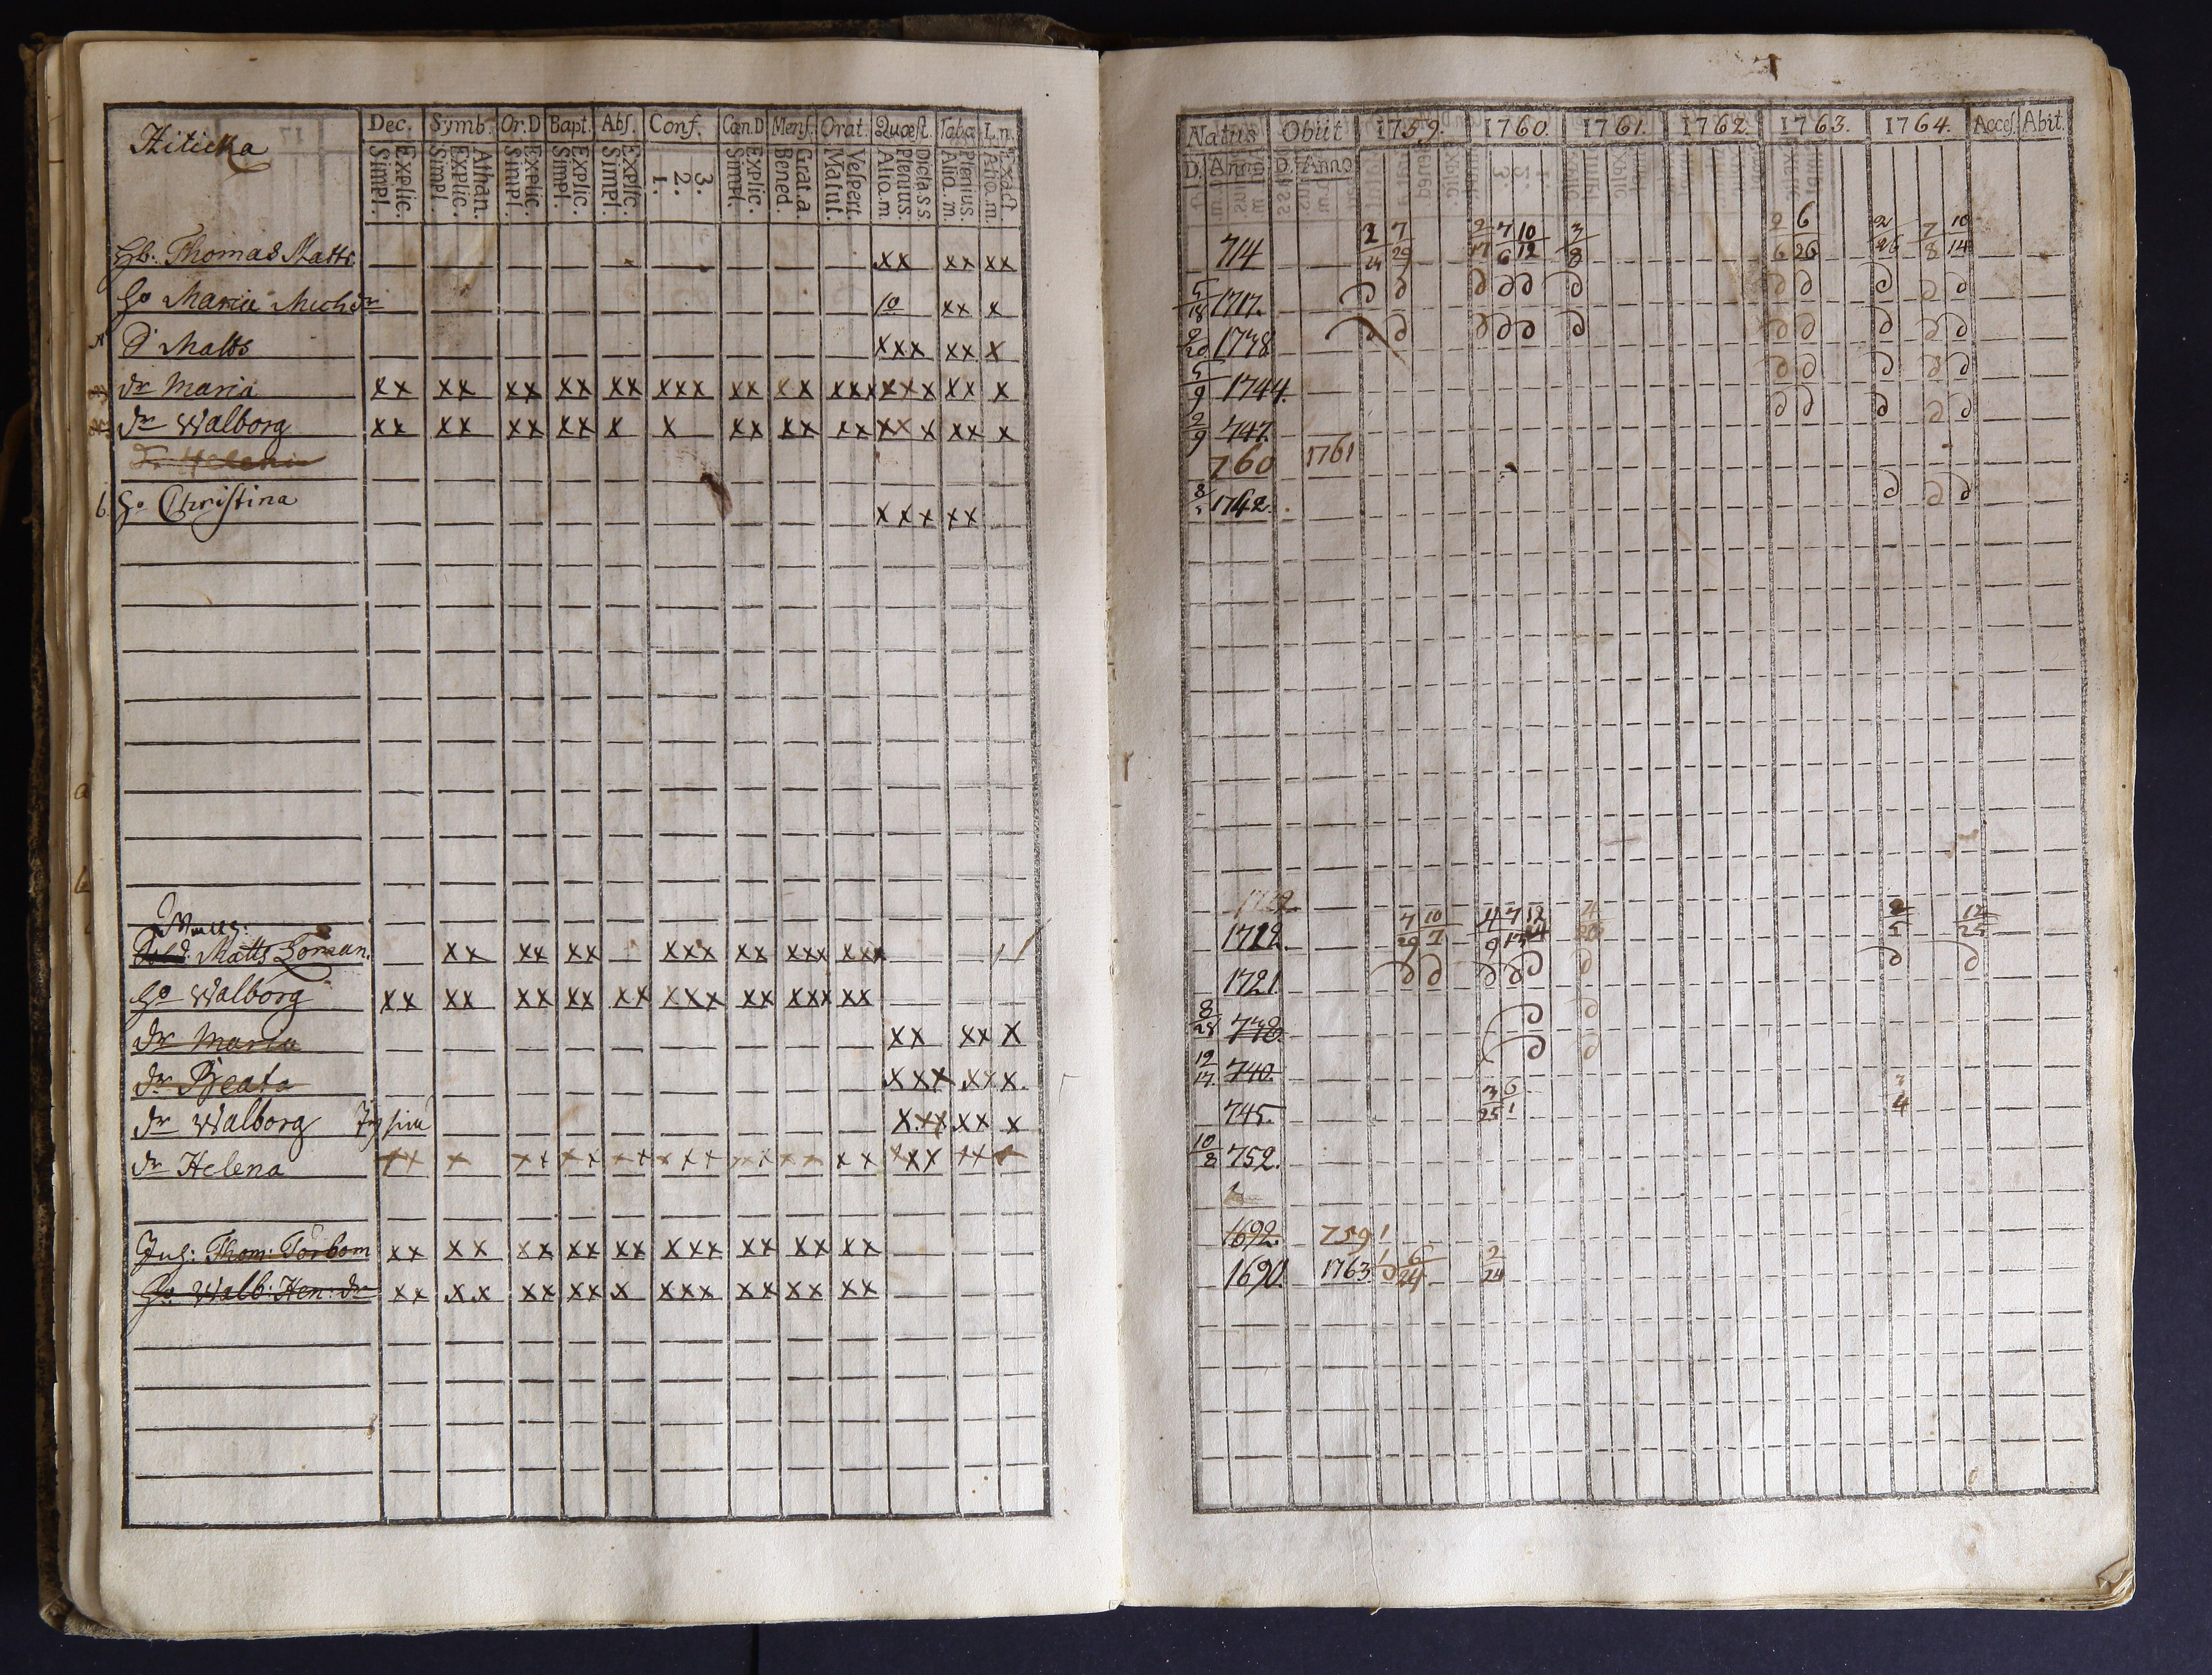 Hiticka
Dec. Symb. Or.D Bapt. Abs. Conf. Can.D Mens. Orat. Quæst. Taba L.n.
Explic. Simpl. Athan. Explic. Simpl. Explic. Simpl. Explic. Simpl. Explic. Simpl. 3. 2. 1. Explic. Simpl. Grat.a. Bened. Vespert. Matut. Dclass. Plenius. Alio.m. Plenius. Alio.m. Exact. Alio.m.
Hb. Thomas Matts xx xx xx
Ho Maria Mich dr 10 xx x
D Matts xxx xx x
dr Maria xx xx xx xx xx xxx xx xx xxx xxx xx x
dr Walborg xx xx xx xx x x xx xx xx xxx xx x
dr Helena
b. Ho Christina xxx xx
Matts Loman. xx xx xx xxx xx xxx xxx
Ho Walborg xx xx xx xx xx xxx xx xxx xx
dr Maria xx xx x
dr Beata xxx xx x
dr Walborg xxx xx x
dr Helena xx x xx xx xx xxx xxx xx xx xxx xx x
Inh: Thom: Törbom xx xx xx xx xx xxx xx xx xx
Ho Walb: Hen: dr xx xx xx xx x xxx xx xx xx
Natus Obiit 1759. 1760. 1761. 1762. 1763. 1764. Acces. Abit.
D. Anno D. Anno
714 2/24 7/29 2/17 7/6 10/12 3/8 2/6 6/26 2/26 7/8 10/14
5/18 1717.
2/20 1738
5/9 1744.
2/9 747.
760 1761
1742.
1722. 7/29 10/7 4/9 2/5 12/25
1721.
8/28 738.
12/17 740.
745. 3/25 6/1 3/4
10/8 752.
1692. 759 1
1690. 1763 6/24 2/24